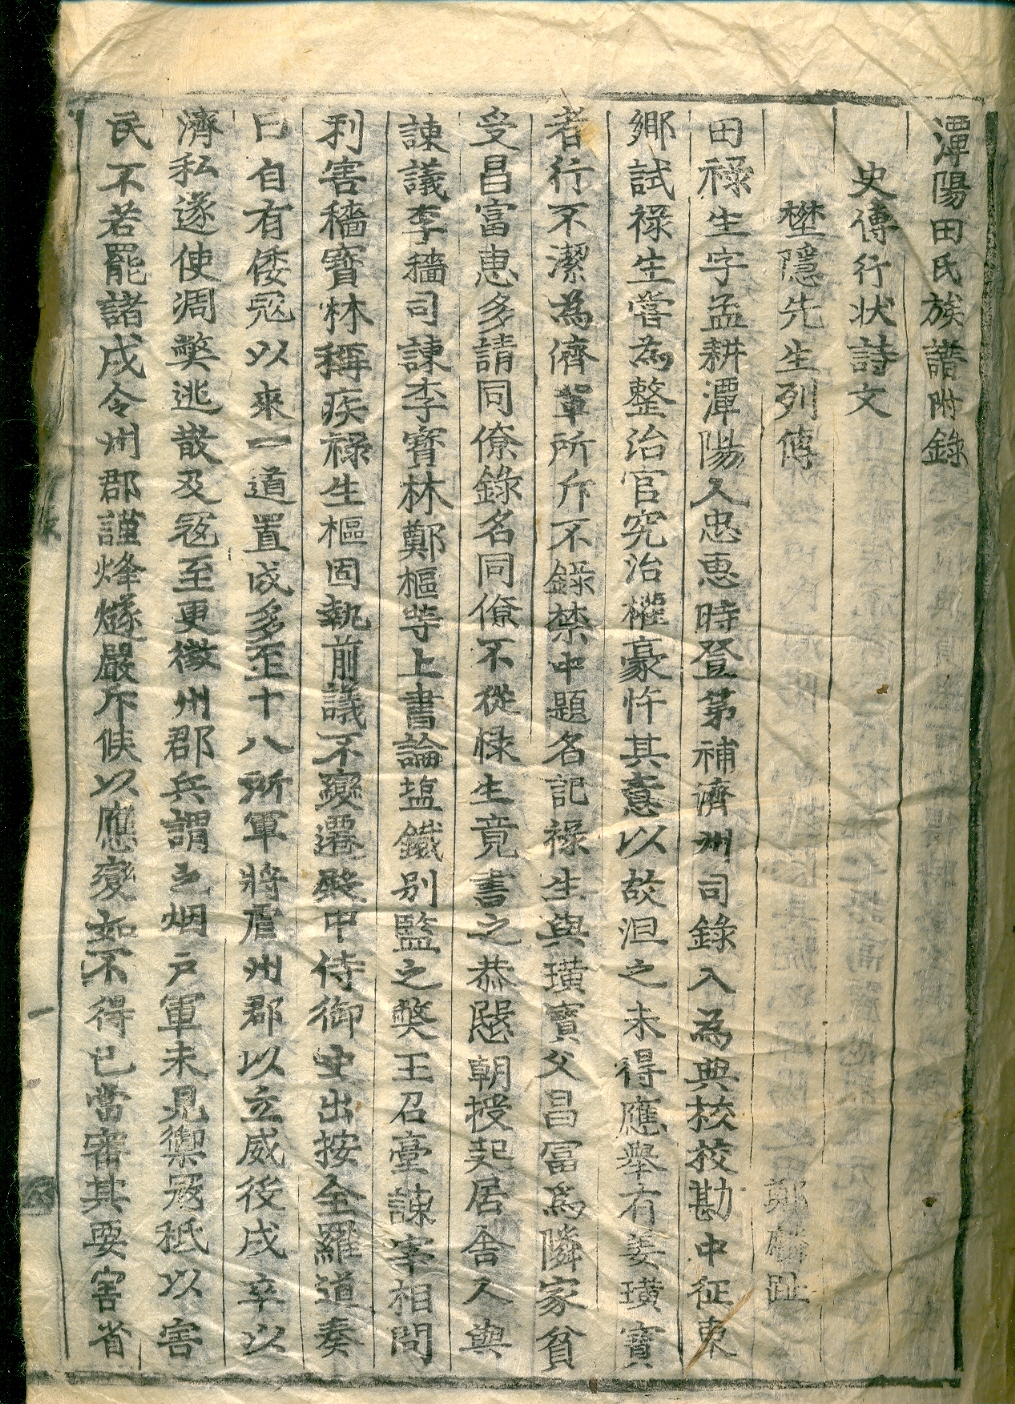 潭陽田氏族譜附錄
史傳行狀詩文
埜隱先生列傳
鄭麟趾
田祿生字孟耕潭陽人忠惠時登第補濟州司錄入為典校校勘中征東
鄉試祿生嘗為整治官究治權豪忤其意以故沮之未得應舉有姜璜寶
者行不潔為儕輩所斥不錄禁中題名記祿生與璜寶父昌富為隣家貧
受昌富惠多請同僚錄名同僚不從祿生竟書之恭愍朝授起居舍人與
諫議李穡司諫李寶林鄭樞等上書論塩鐵別監之獘王召臺諫宰相問
利害穡寶林稱疾祿生樞固執前議不變遷殿中侍御史出按全羅道奏
曰自有倭冦以來一道置戍多至十八所軍將虐州郡以立威後戍卒以
濟私遂使凋獘逃散及冦至更徵州郡兵謂之烟戶軍未見禦冦秪以害
民不若罷諸戍令州郡謹烽燧嚴斥候以應變如不得已當審其要害省